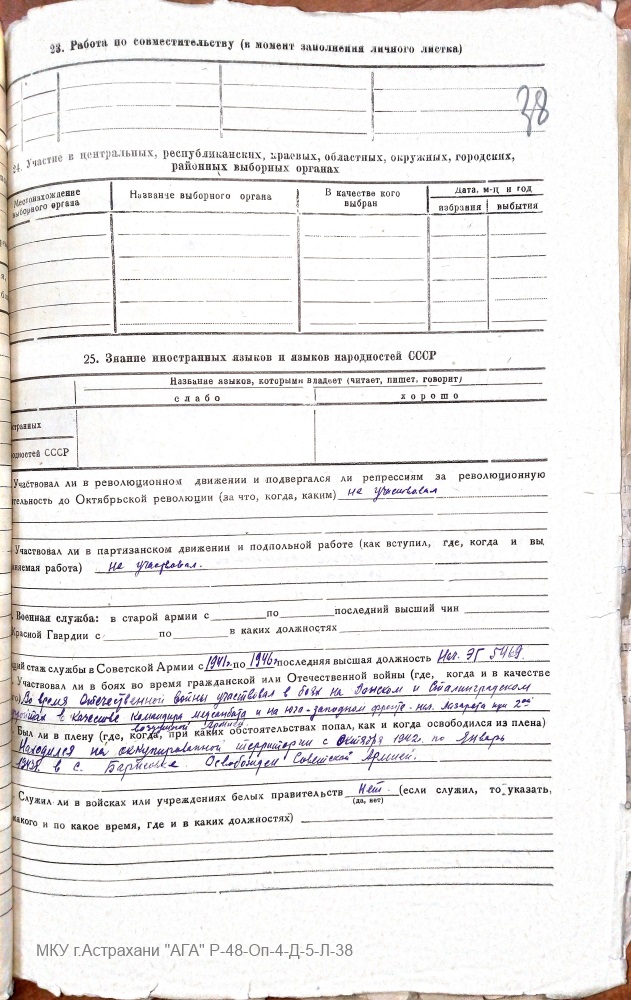 23. Работа по совместительству (в момент заполнения личного листка)
38
24. Участие в центральных, республиканских, краевых, областных, окружных, городских,
районных выборных органах
Местонахождение выборного органа
Название выборного органа
В качестве кого выбран
Дата, м-ц и год
избрания
выбытия
25. Знание иностранных языков и языков народностей СССР
Название языков, которыми владеет (читает, пишет, говорит)
слабо
хорошо
странных
родностей СССР
Участвовал ли в революционном движении и подвергался ли репрессиям за революционную
тельность до Октябрьской революции (за что, когда, каким) не участвовал
Участвовал ли в партизанском движении и подпольной работе (как вступил, где, когда и вы
няемая работа) не участвовал.
Военная служба: в старой армии с по последний высший чин
Красной Гвардии с по в каких должностях
щий стаж службы в Советской Армии с 1941г. по 1946г. последняя высшая должность Нач. ЭГ 5469.
Участвовал ли в боях во время гражданской или Отечественной войны (где, когда и в качестве
го) Во время Отечественной войны участвовал в боях на Донском и Сталинградском
фронтах в качестве командира медсанбата и на юго-западном фронте - нач. лазарета при 2ой
воздушной Армии.
Был ли в плену (где, когда, при каких обстоятельствах попал, как и когда освободился из плена)
Находился на оккупированной территории с Октября 1942г. по Январь
1943г. в с. Освобожден Советской Армией.
Служил ли в войсках или учреждениях белых правительств Нет. (если служил, то указать,
(да, нет)
какого и по какое время, где и в каких должностях)
МКУ г.Астрахани "АГА" Р-48-Оп-4-Д-5-Л-38